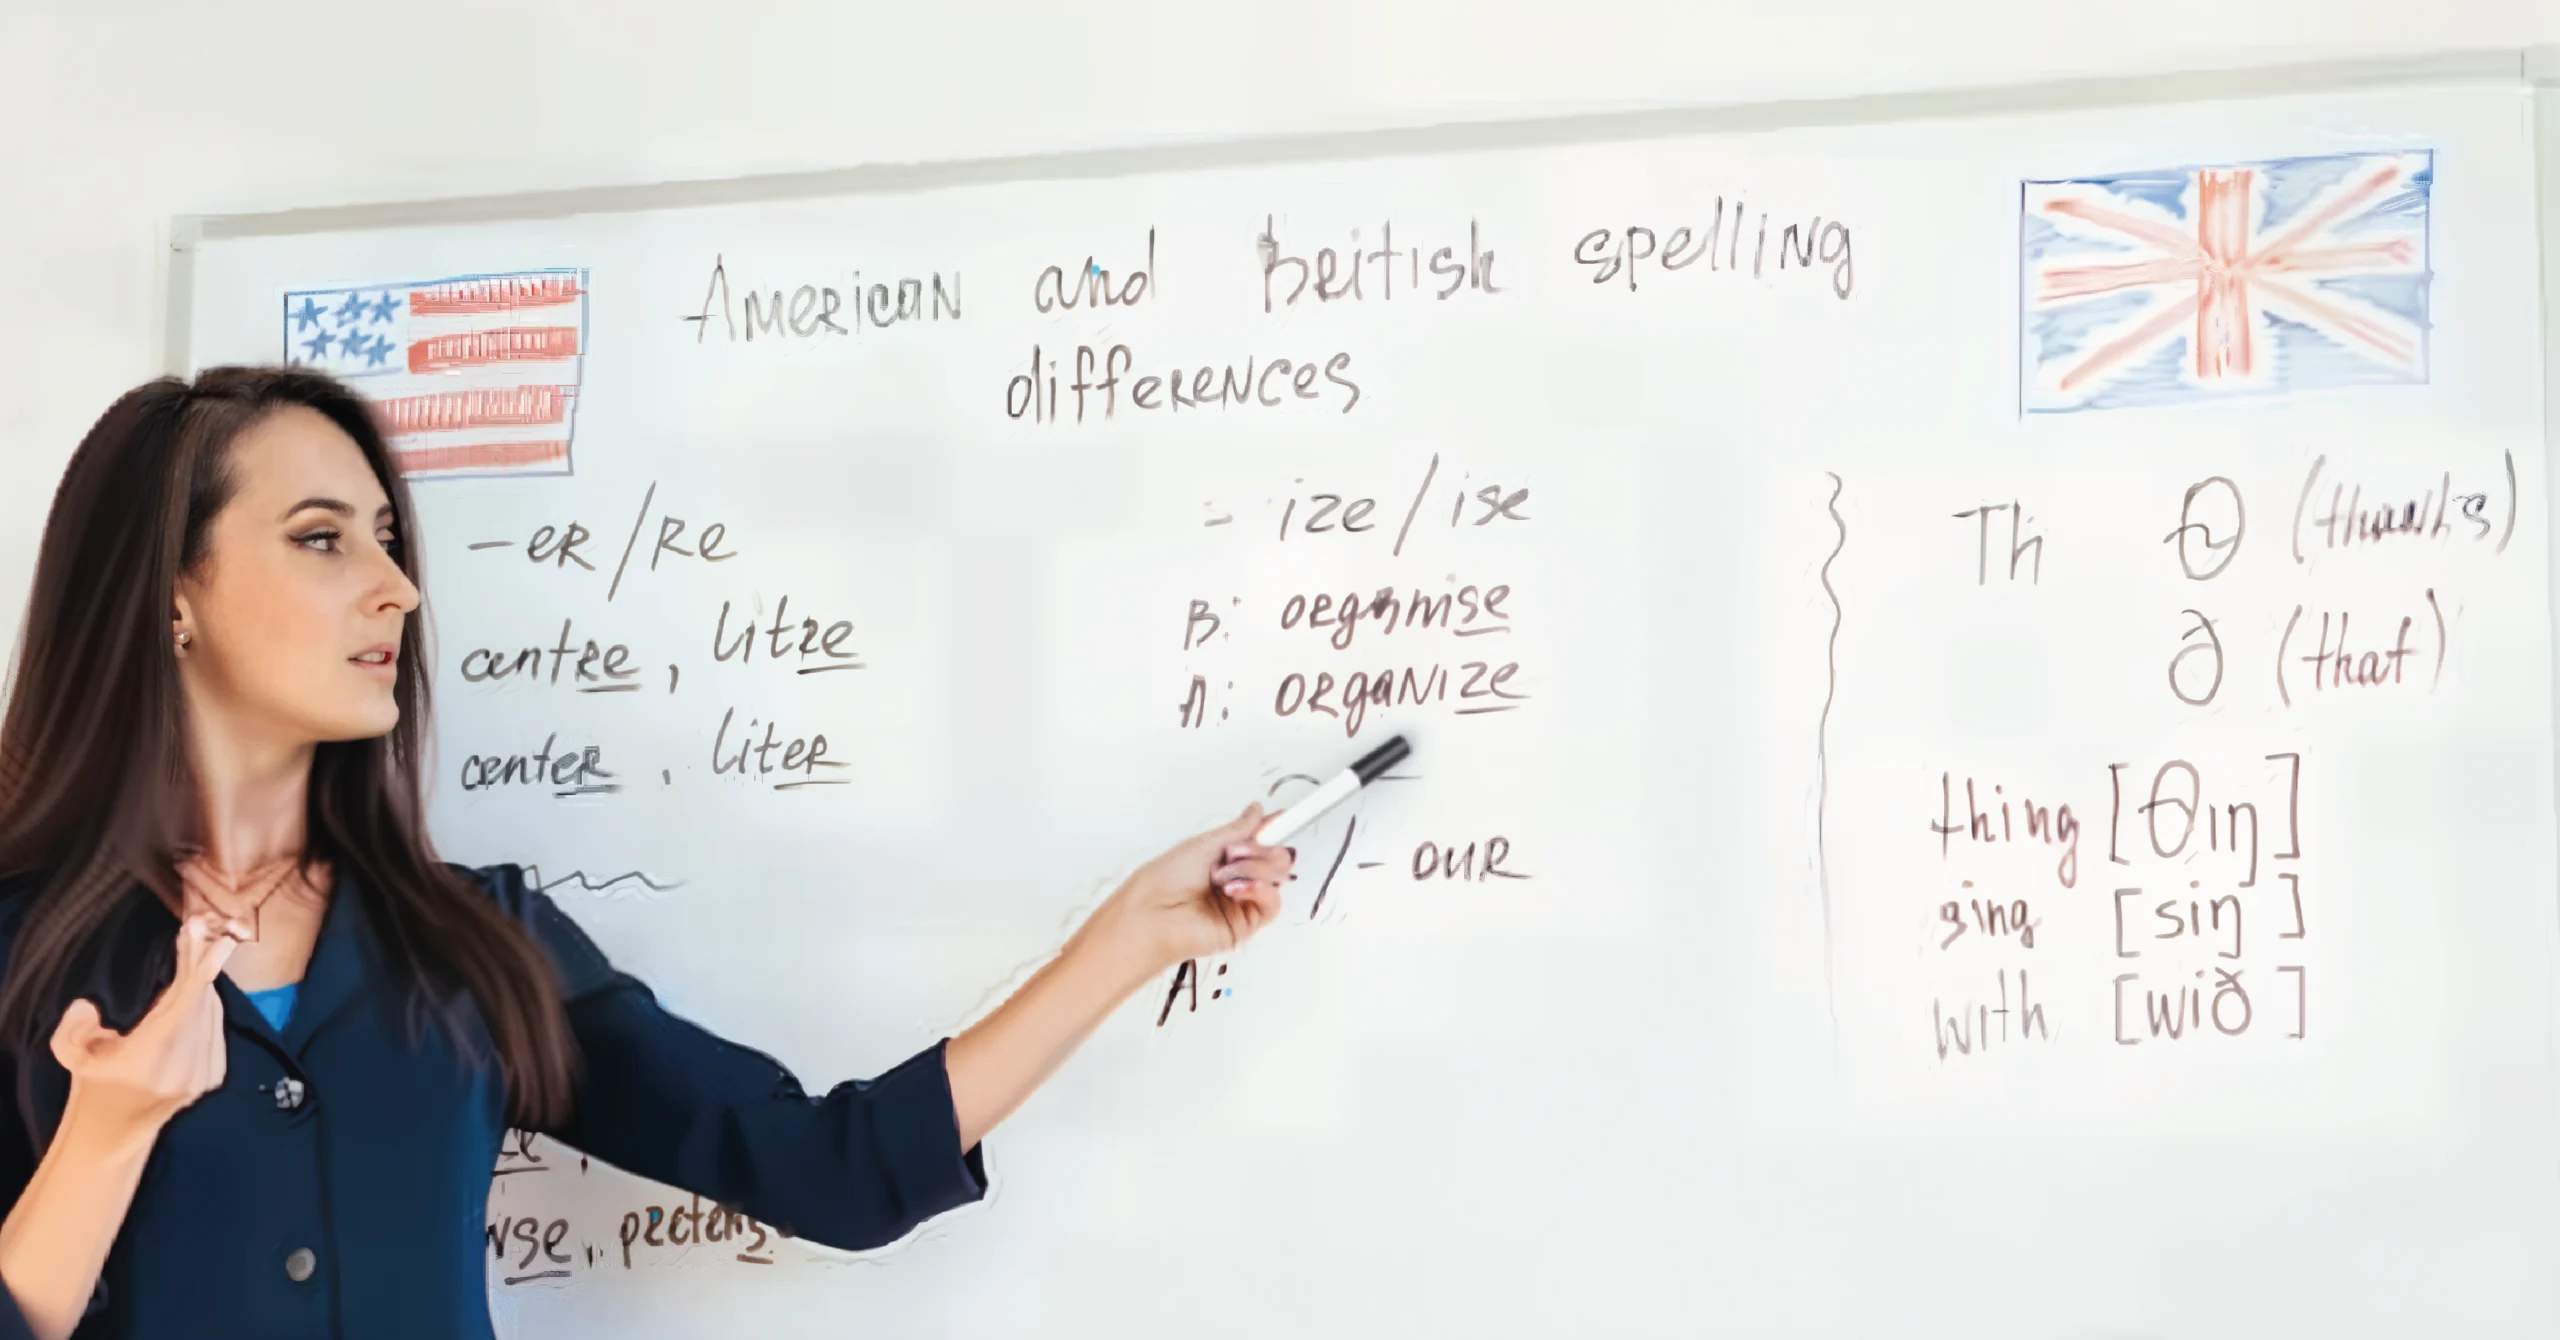 American and British spelling
differences
-er/re
centre, litre
center, liter
- ize/ise
B: organise
A: organize
/- our
A:
Th θ (thanks)
ð (that)
thing [θiŋ]
sing [siŋ]
with [wið]